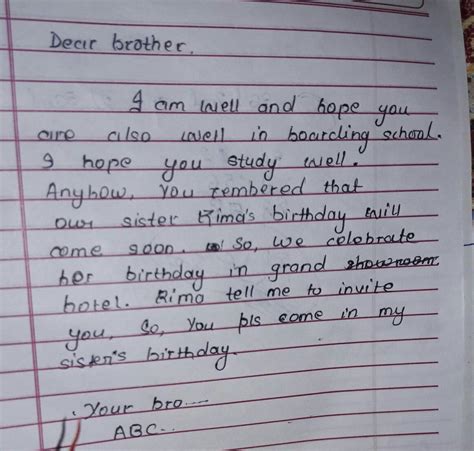 Dear brother,
I am well and hope you
are also well in boarding school.
I hope you study well.
Anyhow, you rembered that
our sister Rima's birthday will
come soon. So, we celobrate
her birthday in grand showroom
hotel. Rima tell me to invite
you, So, you pls come in my
sister's birthday.
Your bro....
ABC..